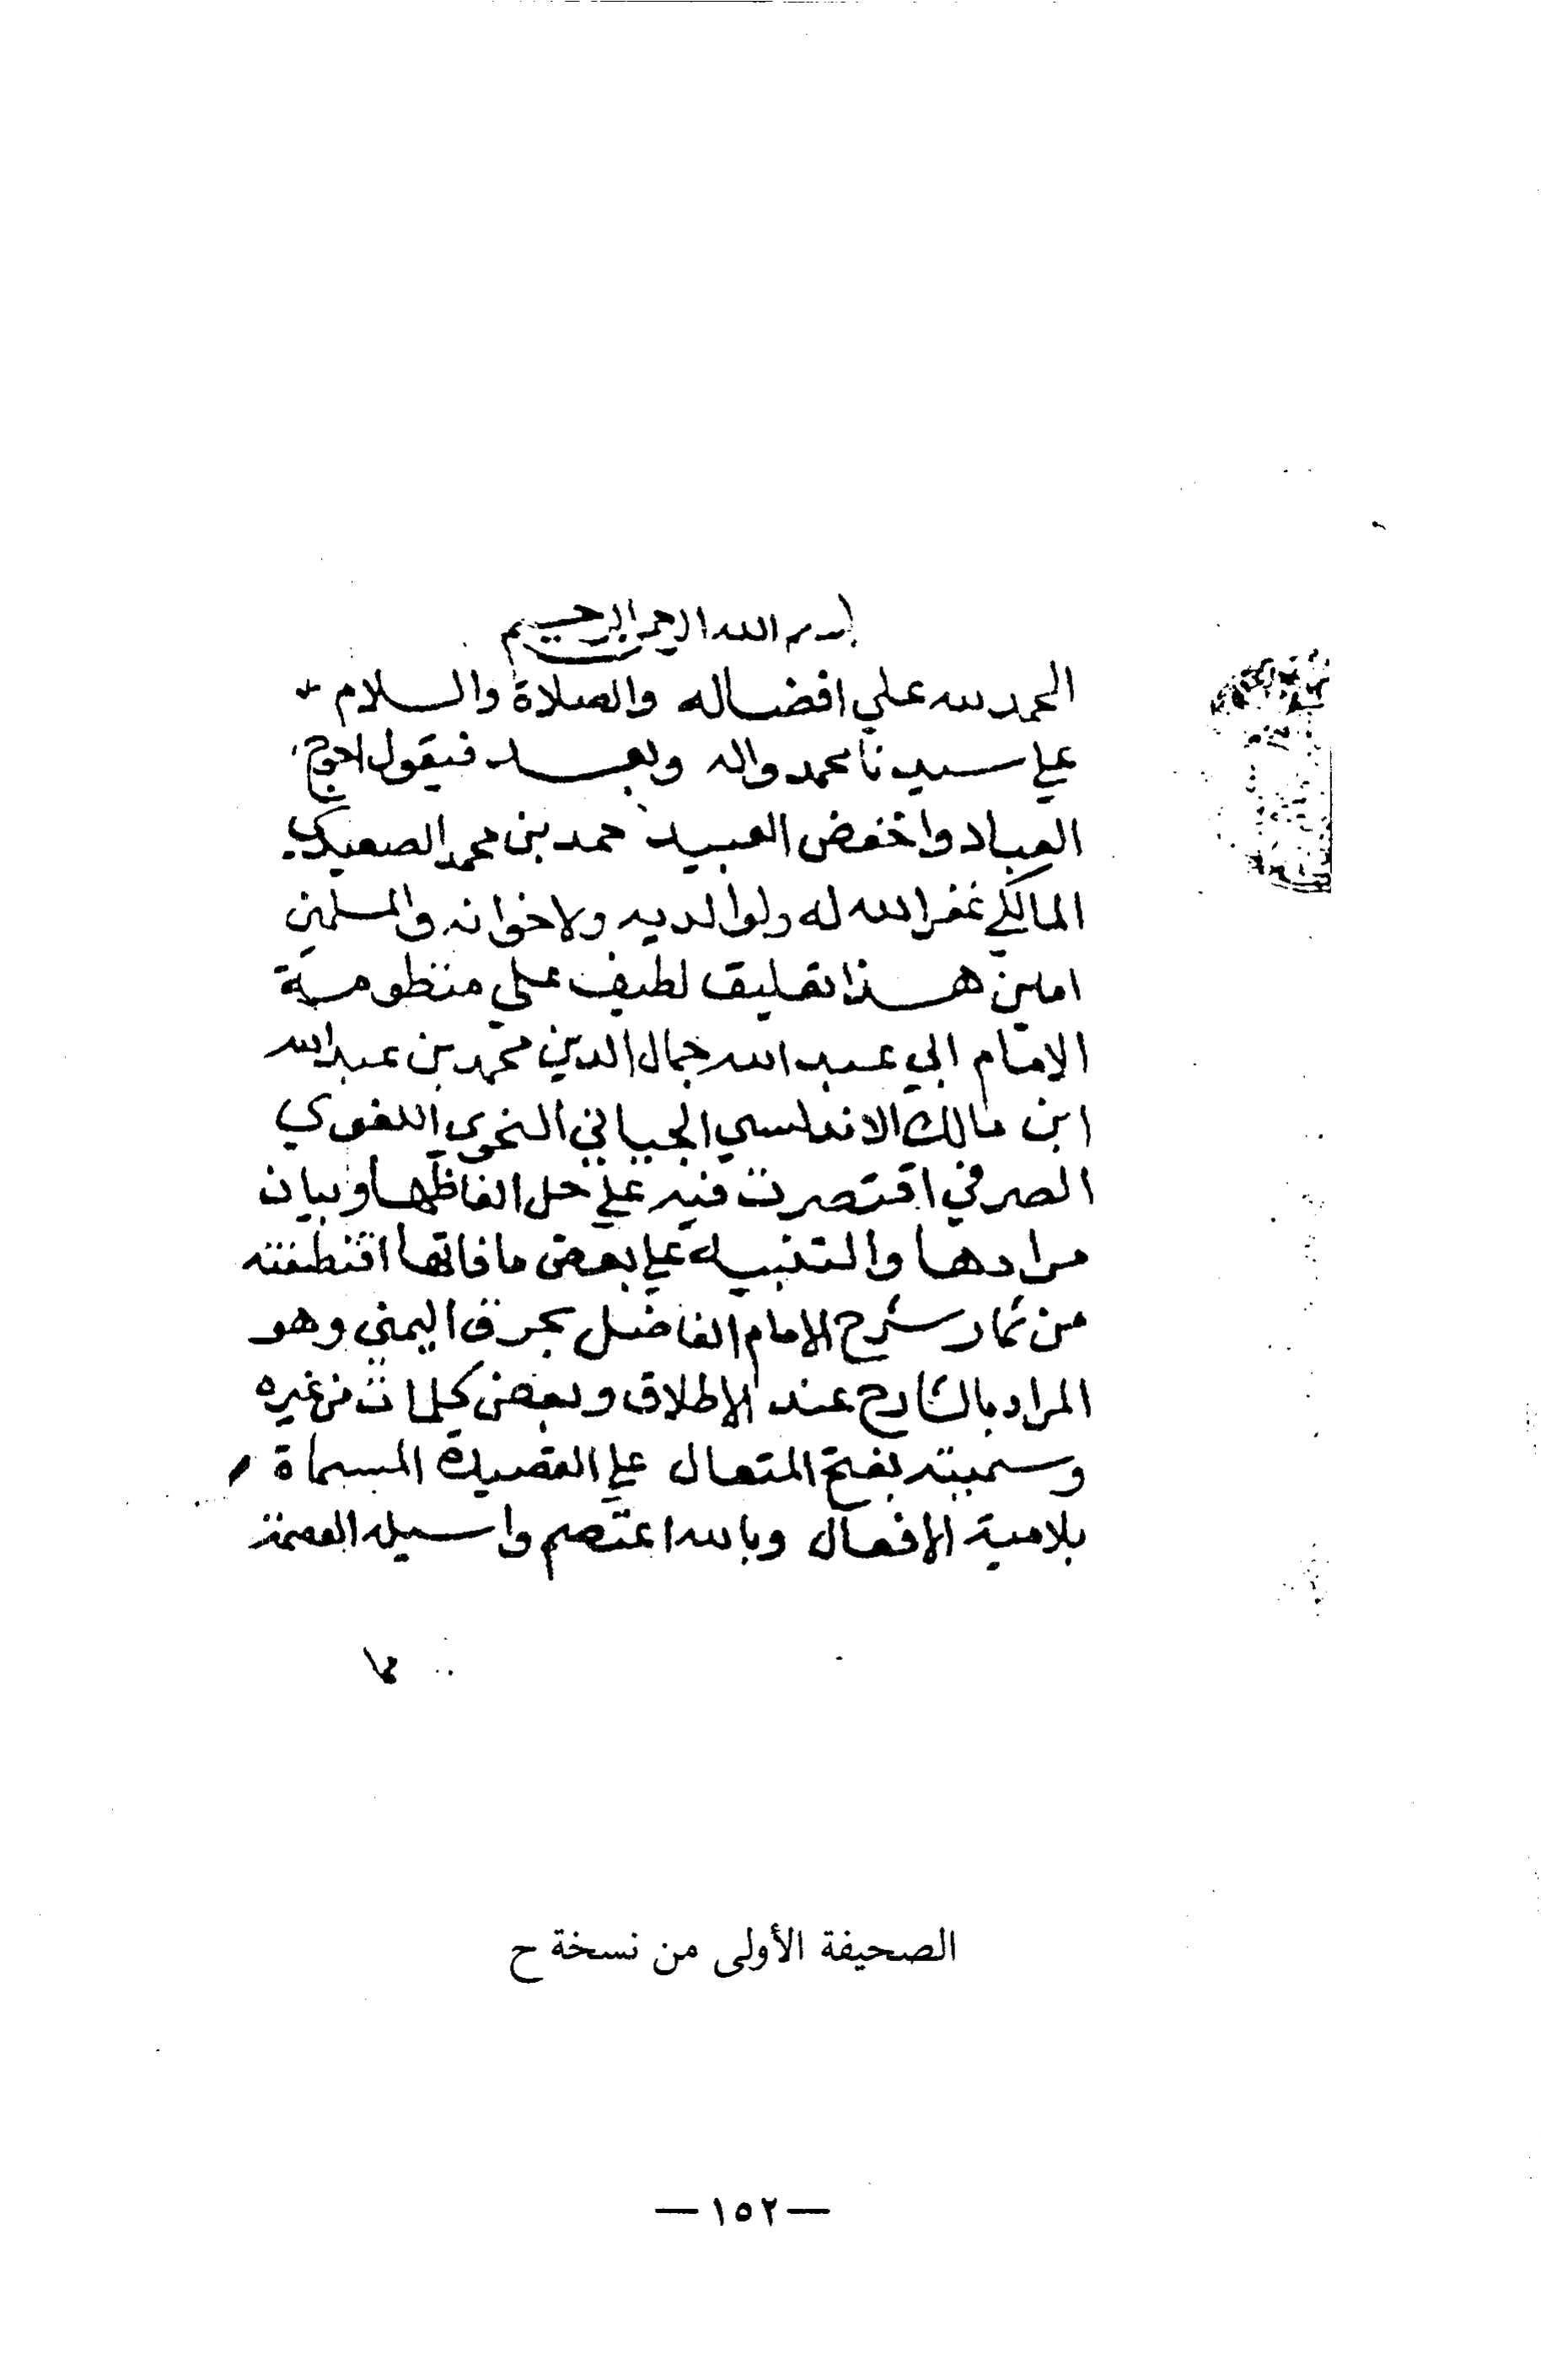 بسم الله الرحمن الرحيم
الحمد لله علي افضاله والصلاة والسلام
علي سيدنا محمد واله وبعد فيقول احوج
العباد واخفض العبيد حمد بن محمد الصعيدي
المالكي غفر الله له ولوالديه ولاخوانه والمسلمين
امين هذا تعليق لطيف علي منظومة
الامام ابي عبد الله جمال الدين محمد بن عبد الله
ابن مالك الاندلسي الجياني النحوي اللغوي
الصرفي اقتصرت فيه علي حل الفاظها وبيان
مرادها والتنبيه علي بعض ما فاتها اقتطفته
من ثمار شرح الامام الفاضل بحرق اليمني وهو
المراد بالشارح عند الإطلاق وبعض كلمات من غيره
وسميته بفتح المتعال علي القصيدة المسماة
بلامية الافعال وبالله اعتصم واسيله العصمة
الصحيفة الأولى من نسخة ح
— ١٥٢ —